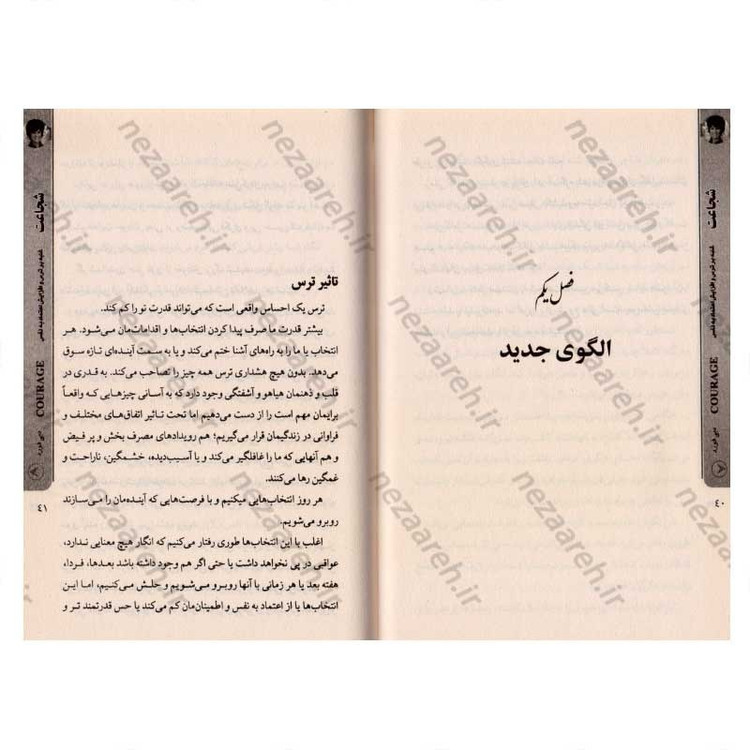 فصل یکم
الگوی جدید
شجاعت
غلبه بر ترس و افزایش اعتماد به نفس
COURAGE
دبی فورد
۴۰
تاثیر ترس
ترس یک احساس واقعی است که می‌تواند قدرت تو را کم کند.
بیشتر قدرت ما صرف پیدا کردن انتخاب‌ها و اقدامات‌مان می‌شود. هر
انتخاب یا ما را به راه‌های آشنا ختم می‌کند و یا به سمت آینده‌ای تازه سوق
می‌دهد. بدون هیچ هشداری ترس همه چیز را تصاحب می‌کند. به قدری در
قلب و ذهنمان هیاهو و آشفتگی وجود دارد که به آسانی چیزهایی که واقعاً
برایمان مهم است را از دست می‌دهیم اما تحت تاثیر اتفاق‌های مختلف و
فراوانی در زندگیمان قرار می‌گیریم؛ هم رویدادهای مصرف بخش و پر فیض
و هم آنهایی که ما را غافلگیر می‌کند و یا آسیب‌دیده، خشمگین، ناراحت و
غمگین رها می‌کنند.
هر روز انتخاب‌هایی میکنیم و با فرصت‌هایی که آینده‌مان را می‌سازند
روبرو می‌شویم.
اغلب با این انتخاب‌ها طوری رفتار می‌کنیم که انگار هیچ معنایی ندارد،
عواقبی در پی نخواهد داشت یا حتی اگر هم وجود داشته باشد بعدها، فردا،
هفته بعد یا هر زمانی با آنها روبرو می‌شویم و حلش می‌کنیم، اما این
انتخاب‌ها یا از اعتماد به نفس و اطمینان‌مان کم می‌کند یا حس قدرتمند تر و
شجاعت
غلبه بر ترس و افزایش اعتماد به نفس
COURAGE
دبی فورد
۴۱
nezaareh.ir